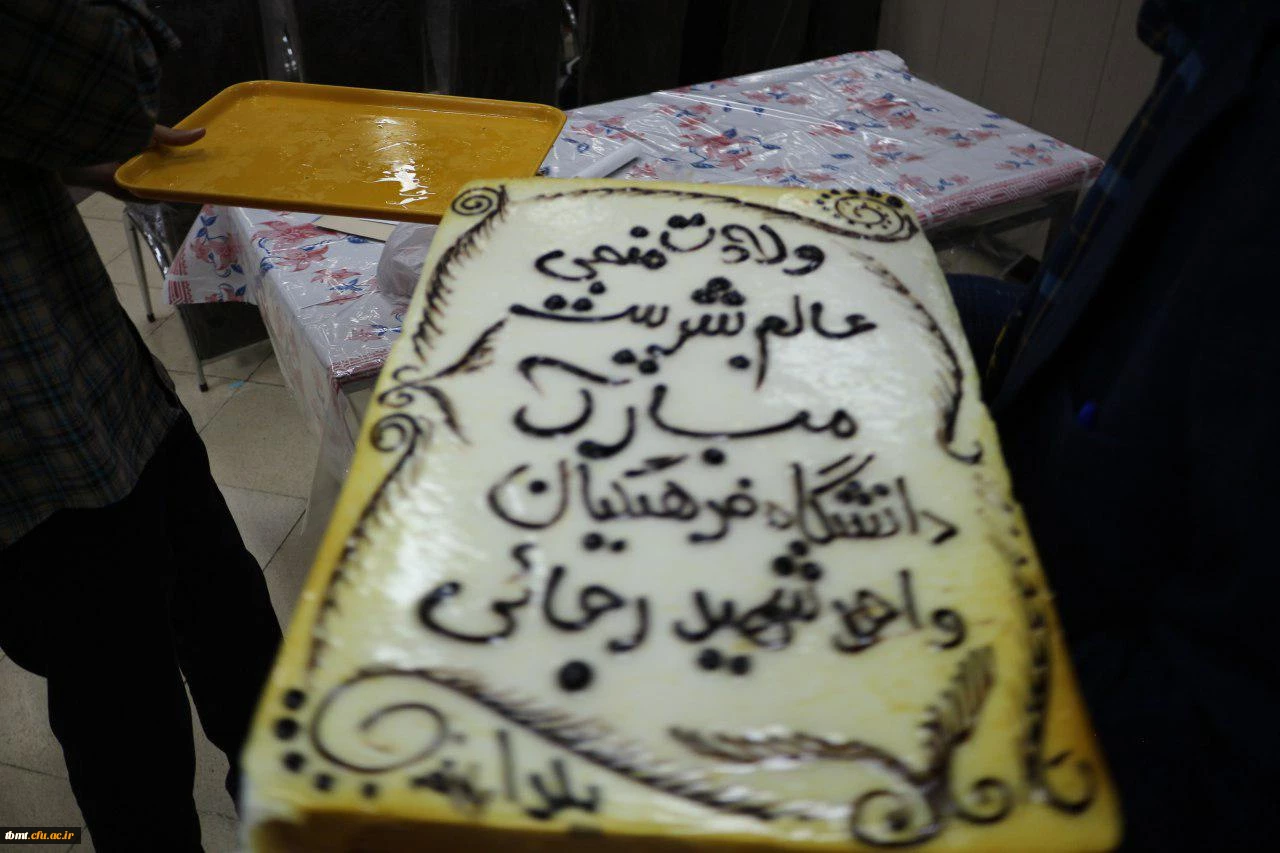 ولادت منجی
عالم بشریت
مبارک
دانشگاه فرهنگیان
واحد شهید رجائی
tbmt.cfu.ac.ir